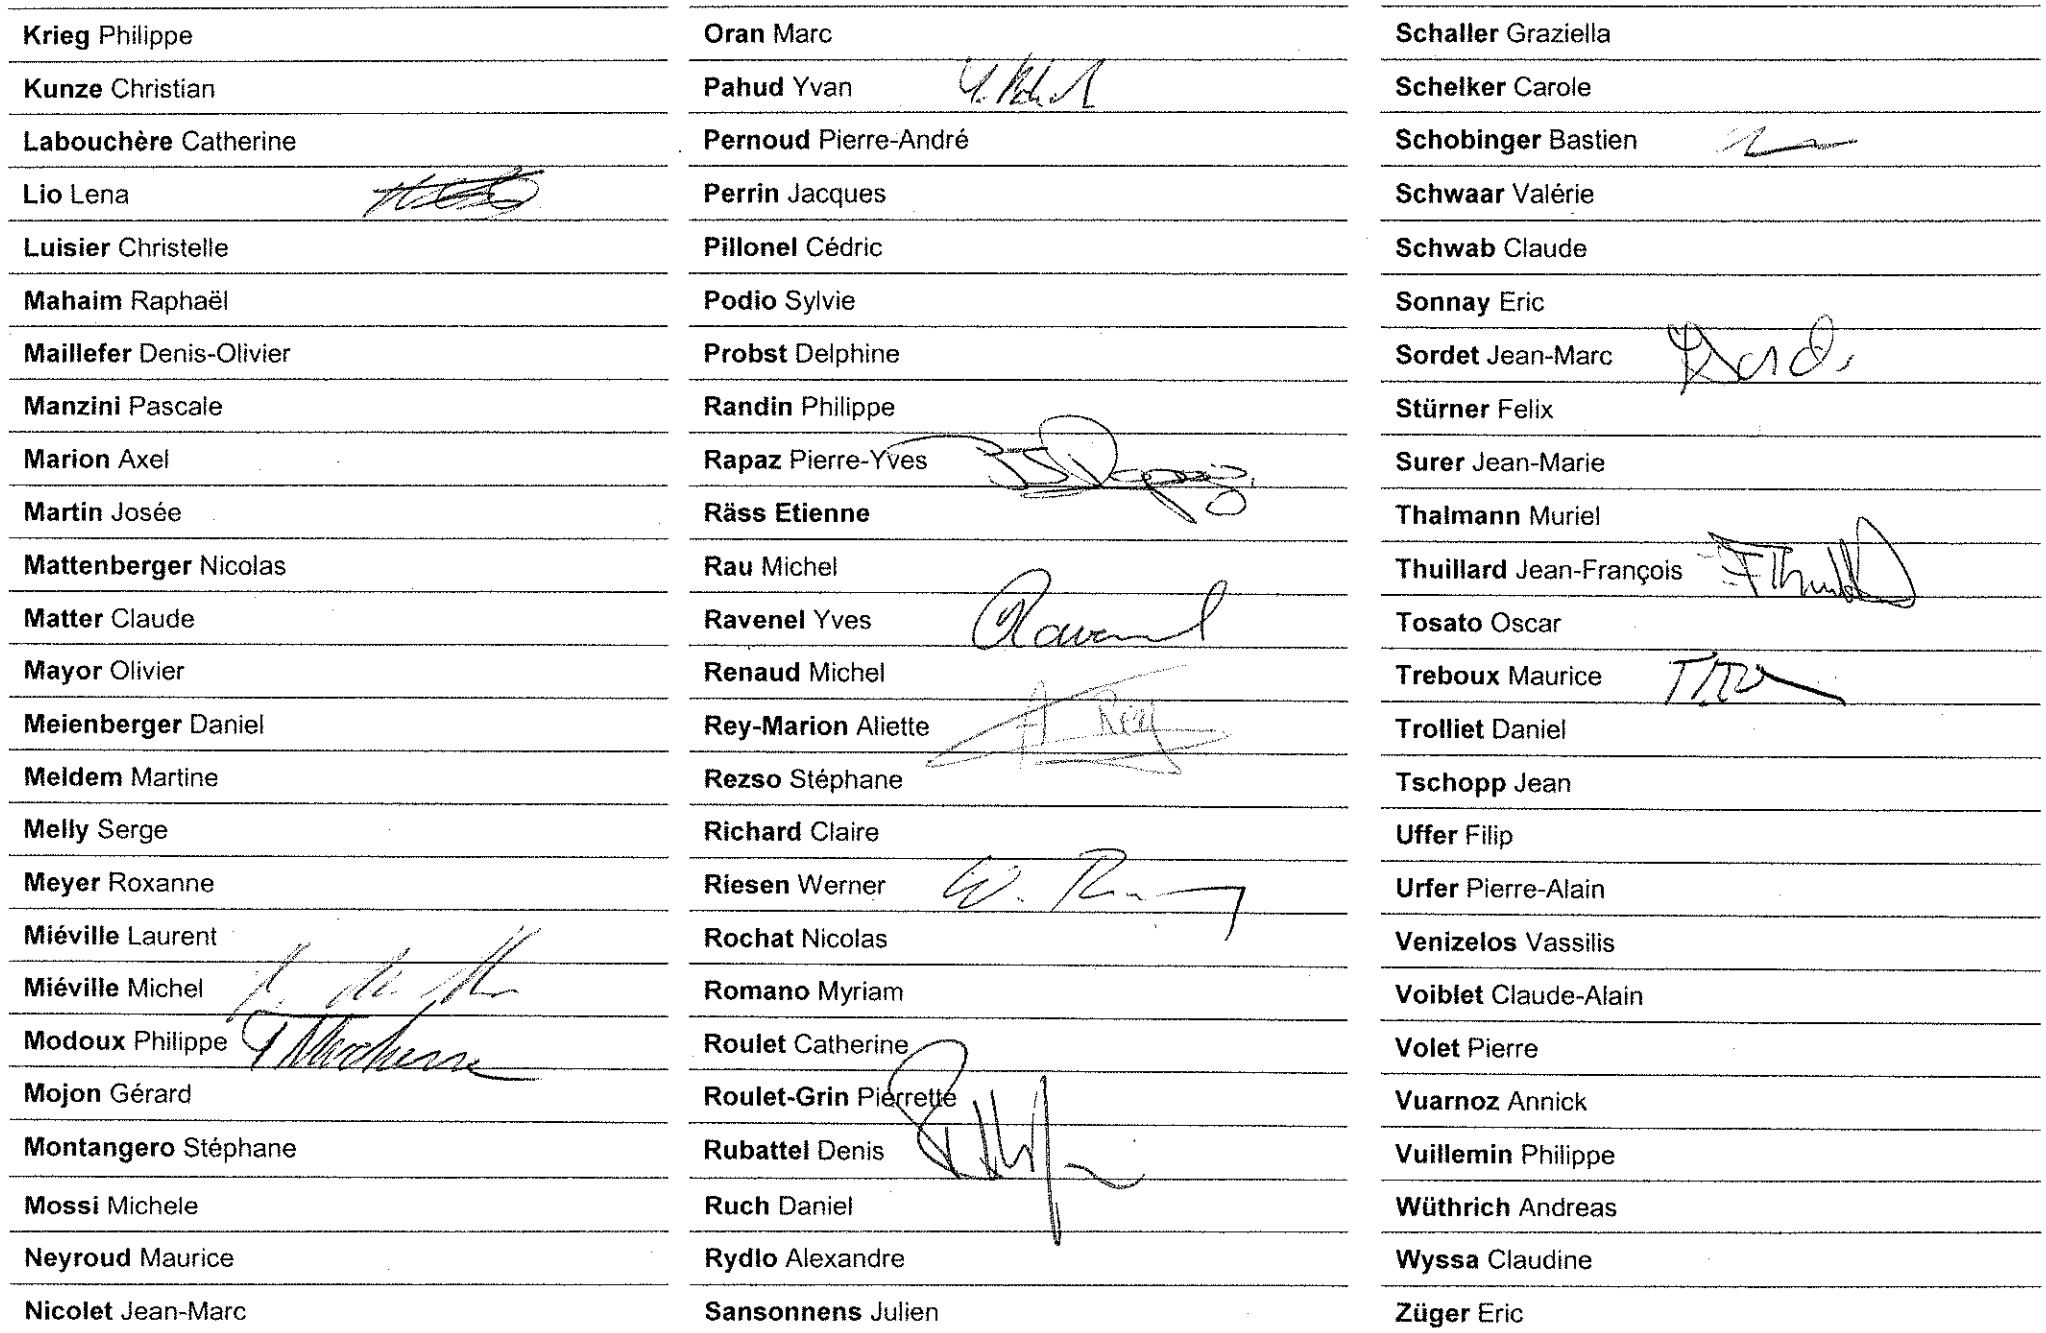 Krieg Philippe
Kunze Christian
Labouchère Catherine
Lio Lena
Luisier Christelle
Mahaim Raphaël
Maillefer Denis-Olivier
Manzini Pascale
Marion Axel
Martin Josée
Mattenberger Nicolas
Matter Claude
Mayor Olivier
Meienberger Daniel
Meldem Martine
Melly Serge
Meyer Roxanne
Miéville Laurent
Miéville Michel
Modoux Philippe
Mojon Gérard
Montangero Stéphane
Mossi Michele
Neyroud Maurice
Nicolet Jean-Marc
Oran Marc
Pahud Yvan
Pernoud Pierre-André
Perrin Jacques
Pillonel Cédric
Podio Sylvie
Probst Delphine
Randin Philippe
Rapaz Pierre-Yves
Räss Etienne
Rau Michel
Ravenel Yves Ravenel
Renaud Michel
Rey-Marion Aliette A Rey
Rezso Stéphane
Richard Claire
Riesen Werner W.
Rochat Nicolas
Romano Myriam
Roulet Catherine
Roulet-Grin Pierrette
Rubattel Denis
Ruch Daniel
Rydlo Alexandre
Sansonnens Julien
Schaller Graziella
Schelker Carole
Schobinger Bastien
Schwaar Valérie
Schwab Claude
Sonnay Eric
Sordet Jean-Marc
Stürner Felix
Surer Jean-Marie
Thalmann Muriel
Thuillard Jean-François
Tosato Oscar
Treboux Maurice
Trolliet Daniel
Tschopp Jean
Uffer Filip
Urfer Pierre-Alain
Venizelos Vassilis
Voiblet Claude-Alain
Volet Pierre
Vuarnoz Annick
Vuillemin Philippe
Wüthrich Andreas
Wyssa Claudine
Züger Eric